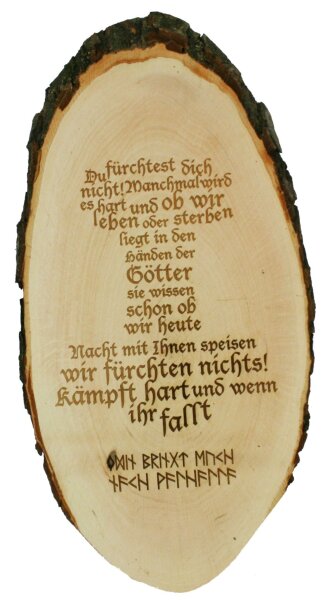 Du fürchtest dich
nicht! Manchmal wird
es hart und ob wir
leben oder sterben
liegt in den
Händen der
Götter
sie wissen
schon ob
wir heute
Nacht mit Ihnen speisen
wir fürchten nichts!
Kämpft hart und wenn
ihr fallt
ᛟᛞᛁᚾ ᛒᚱᛁᚾᚷᛏ ᛖᚢᚲᚺ
ᚾᚨᚲᚺ ᚹᚨᛚᚺᚨᛚᛚᚨ